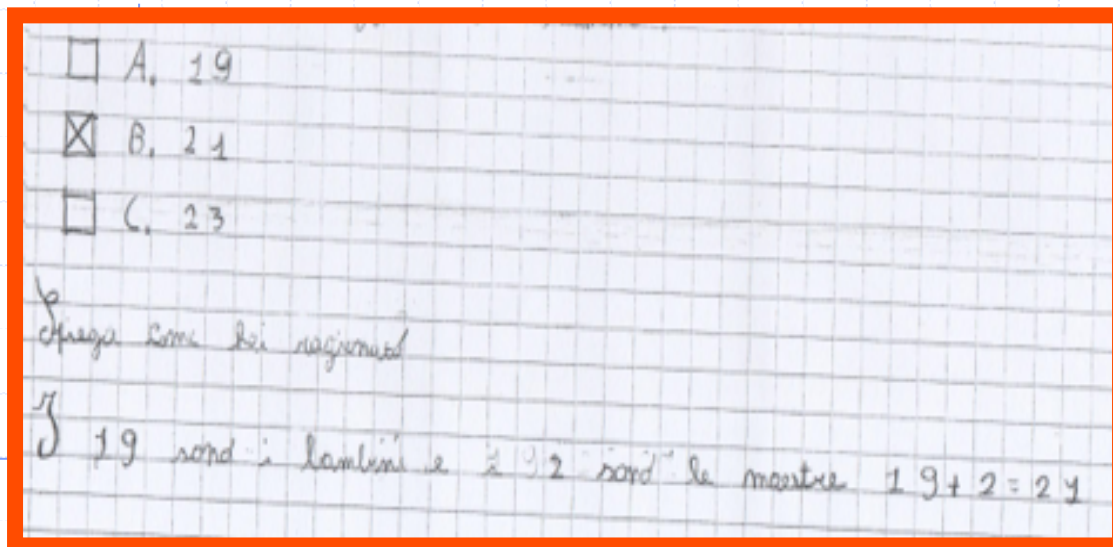 A. 19
B. 21
C. 23
Spiega come hai ragionato
I 19 sono i bambini e i 2 sono le maestre 19+2=21